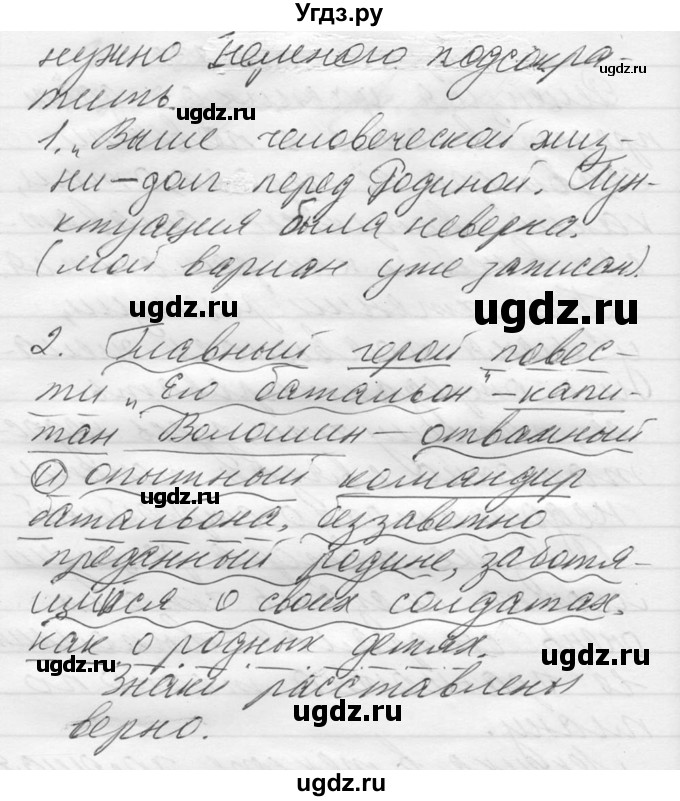 Угдз.ру
нужно немного подсокра-
тить
1. „Выше человеческой жиз-
ни – долг перед Родиной. Пун-
ктуация была неверна.
(мой вариан уже записан).
2. Главный герой повес-
ти „Его батальон" – капи-
тан Волошин – отважный
и опытный командир
батальона, беззаветно
преданный родине, заботя-
щийся о своих солдатах,
как о родных детях.
Знаки расставлены
верно.
ugdz.ru
ugdz.ru
ugdz.ru
ugdz.ru
ugdz.ru
ugdz.ru
ugdz.ru
ugdz.ru
ugdz.ru
ugdz.ru
ugdz.ru